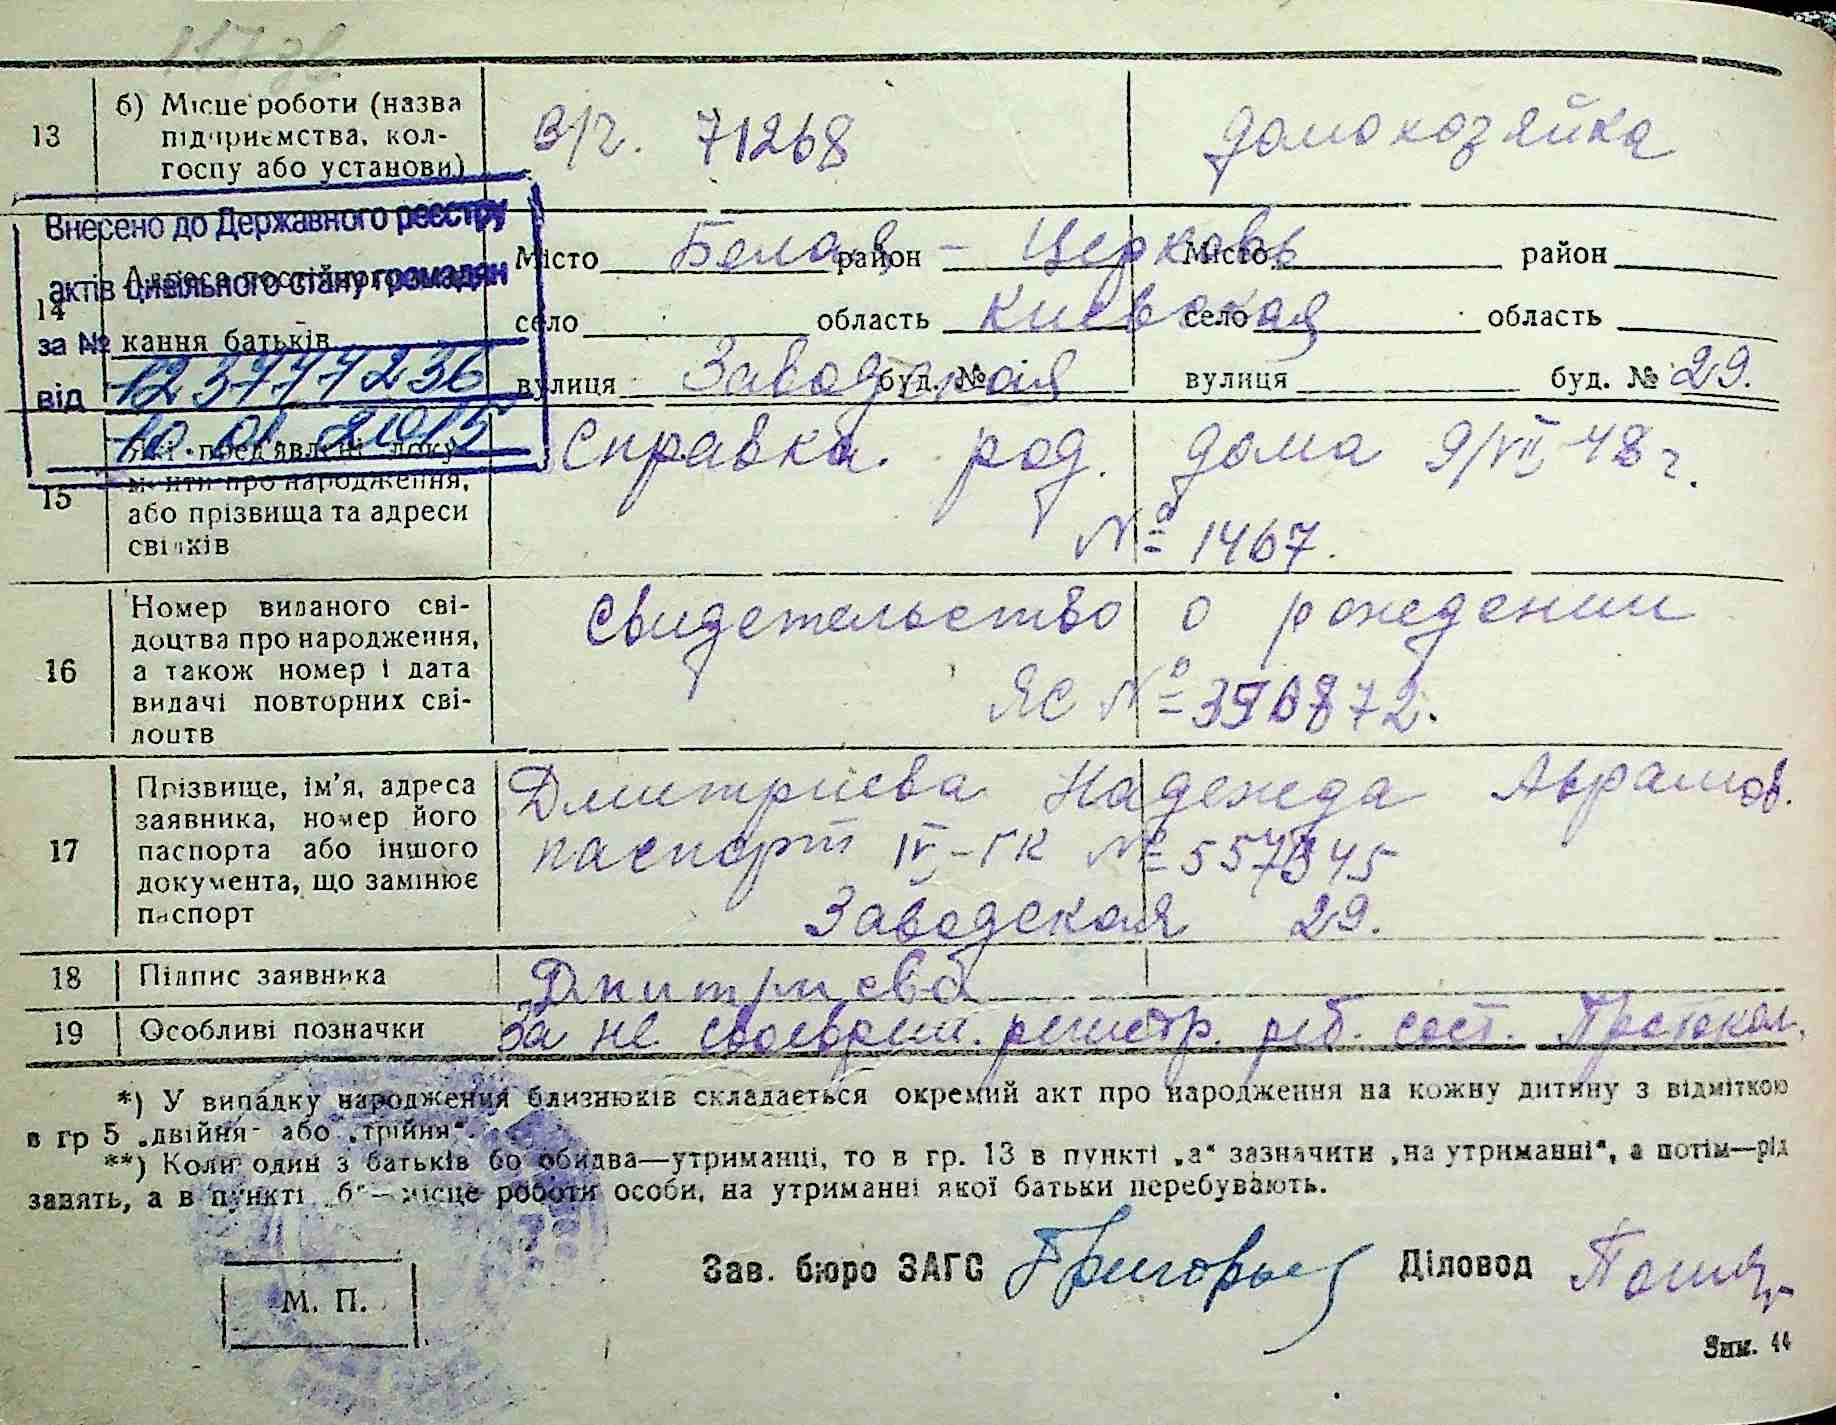 13 б) Місце роботи (назва підприємства, колгоспу або установи) в/ч. 71268 домохозяйка
Внесено до Державного реєстру
актів цивільного стану громадян
за №
від 12377236
10.01.2015
14 Адреса постійного
кання батьків
Місто Белая - Церковь район Місто район
село область Киевская село область
вулиця Заводская буд. № вулиця буд. № 29.
15 документи про народження,
або прізвища та адреси
свідків
Справка род. дома 9/VII 48 г.
№ 1467.
16 Номер виданого сві-
доцтва про народження,
а також номер і дата
видачі повторних сві-
доцтв
Свидетельство о рождении
ЯС №
17 Прізвище, ім'я, адреса
заявника, номер його
паспорта або іншого
документа, що замінює
паспорт
Дмитриева Надежда Аврамов.
паспорт IV-ГК №
Заводская 29.
18 Підпис заявника Дмитриева
19 Особливі позначки За не своеврем. регистр. реб. сост. Протокол.
*) У випадку народження близнюків складається окремий акт про народження на кожну дитину з відміткою
в гр 5 „двійня" або „трійня".
**) Коли один з батьків бо обидва—утриманці, то в гр. 13 в пункті „а" зазначити „на утриманні", а потім—рід
занять, а в пункті „б"—місце роботи особи, на утриманні якої батьки перебувають.
Зав. бюро ЗАГС Діловод
М. П.
Зим. 44